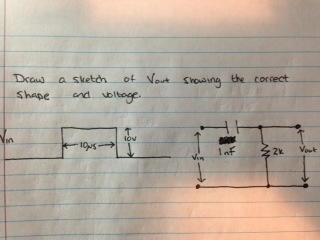 Draw a sketch of Vout showing the correct
shape and voltage.
Vin
10μs
10V
Vin
1nf
2k
Vout